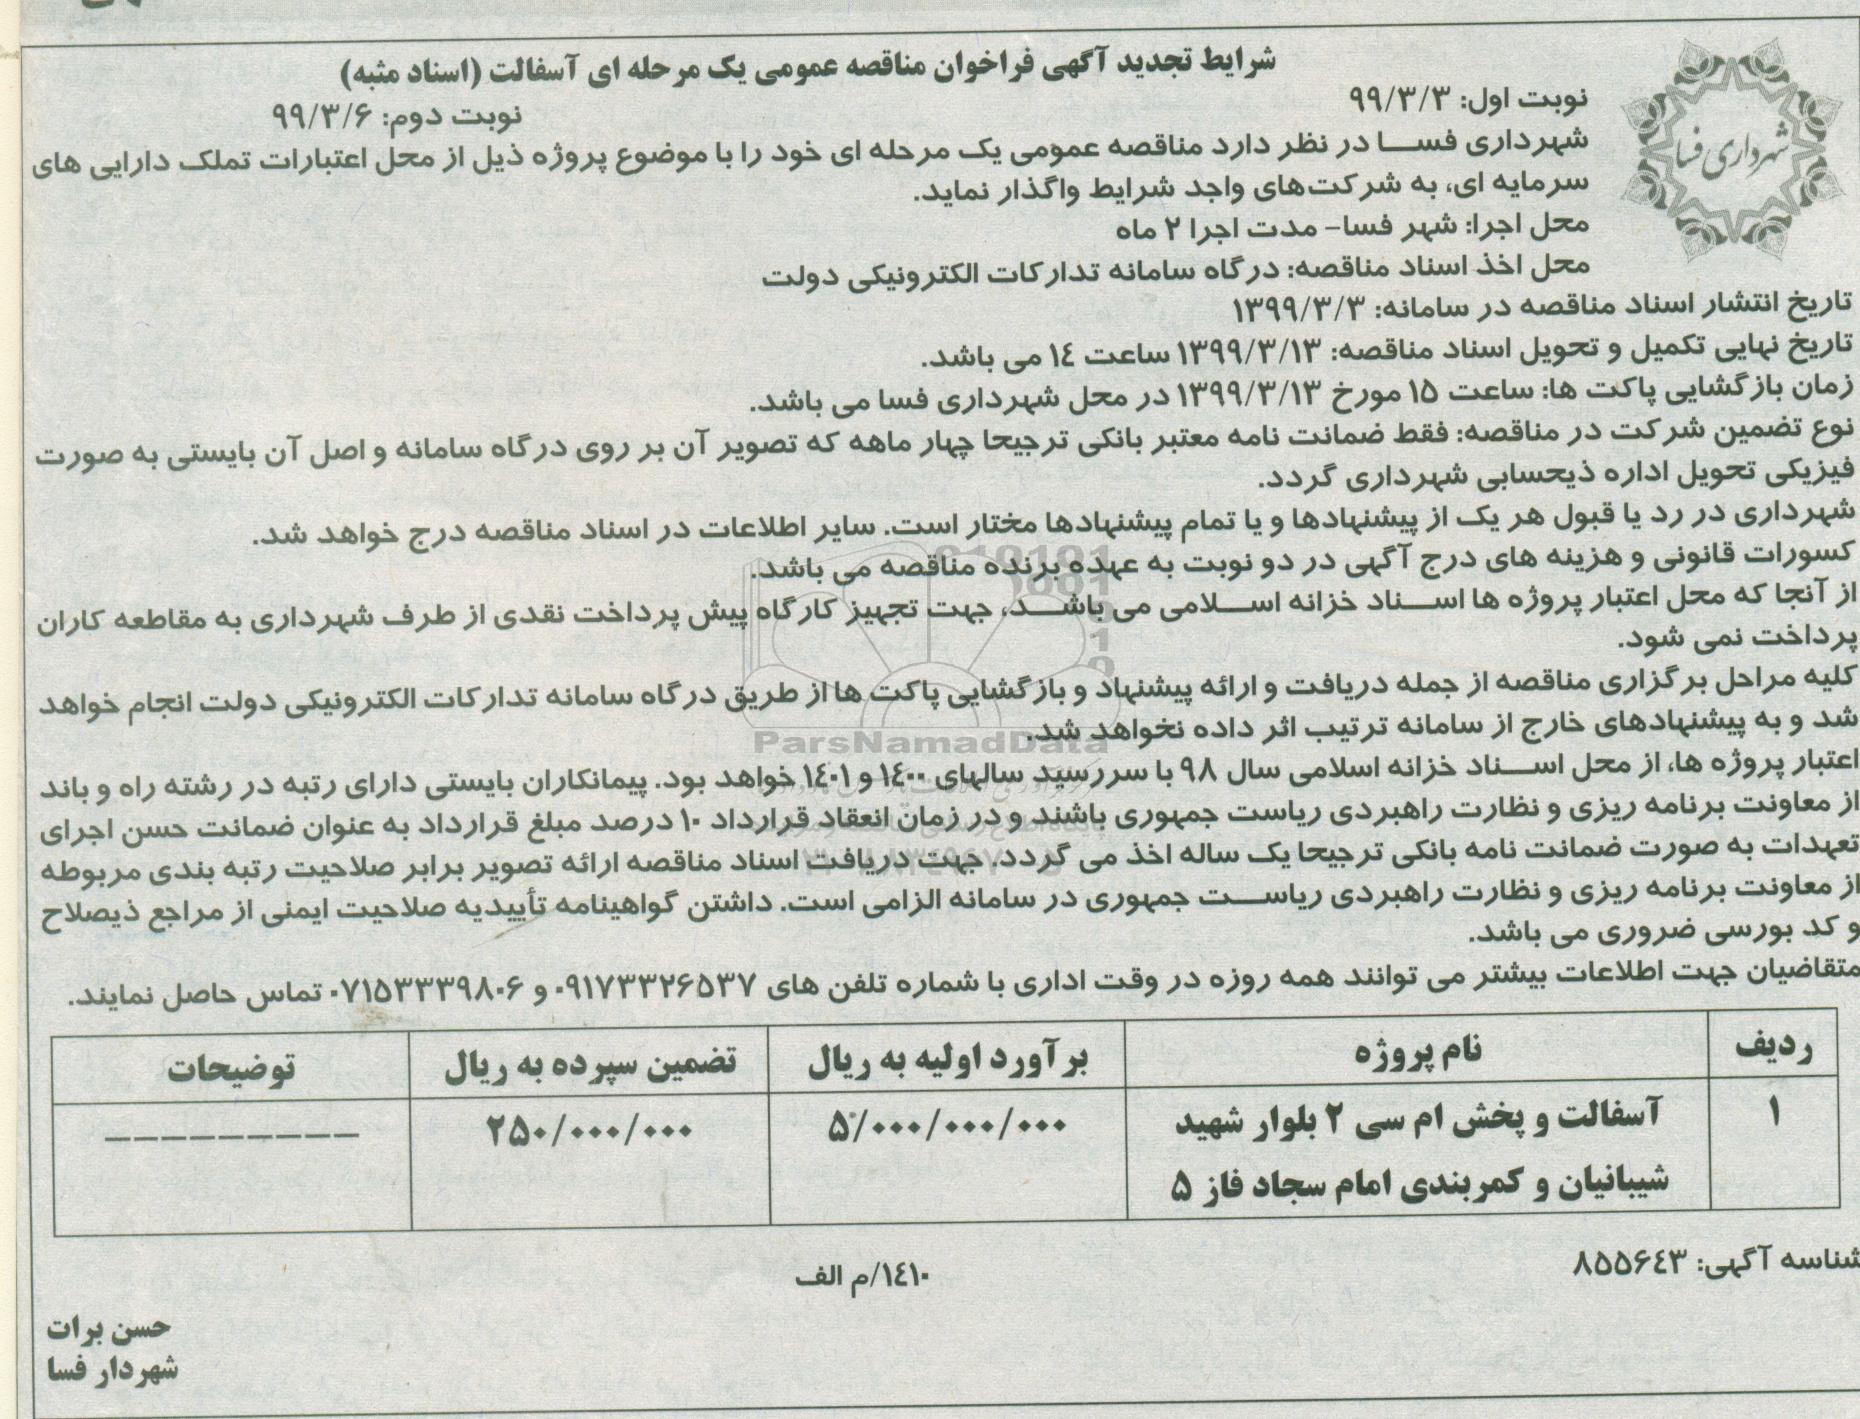 شرایط تجدید آگهی فراخوان مناقصه عمومی یک مرحله ای آسفالت (اسناد مثبه)
شهرداری فسا
نوبت اول: ۹۹/۳/۳
نوبت دوم: ۹۹/۳/۶
شهرداری فسا در نظر دارد مناقصه عمومی یک مرحله ای خود را با موضوع پروژه ذیل از محل اعتبارات تملک دارایی های
سرمایه ای، به شرکت‌های واجد شرایط واگذار نماید.
محل اجرا: شهر فسا- مدت اجرا ۲ ماه
محل اخذ اسناد مناقصه: درگاه سامانه تدارکات الکترونیکی دولت
تاریخ انتشار اسناد مناقصه در سامانه: ۱۳۹۹/۳/۳
تاریخ نهایی تکمیل و تحویل اسناد مناقصه: ۱۳۹۹/۳/۱۳ ساعت ۱٤ می باشد.
زمان بازگشایی پاکت ها: ساعت ۱۵ مورخ ۱۳۹۹/۳/۱۳ در محل شهرداری فسا می باشد.
نوع تضمین شرکت در مناقصه: فقط ضمانت نامه معتبر بانکی ترجیحا چهار ماهه که تصویر آن بر روی درگاه سامانه و اصل آن بایستی به صورت
فیزیکی تحویل اداره ذیحسابی شهرداری گردد.
شهرداری در رد یا قبول هر یک از پیشنهادها و یا تمام پیشنهادها مختار است. سایر اطلاعات در اسناد مناقصه درج خواهد شد.
کسورات قانونی و هزینه های درج آگهی در دو نوبت به عهده برنده مناقصه می باشد.
از آنجا که محل اعتبار پروژه ها اسناد خزانه اسلامی می باشد، جهت تجهیز کارگاه پیش پرداخت نقدی از طرف شهرداری به مقاطعه کاران
پرداخت نمی شود.
کلیه مراحل برگزاری مناقصه از جمله دریافت و ارائه پیشنهاد و بازگشایی پاکت ها از طریق درگاه سامانه تدارکات الکترونیکی دولت انجام خواهد
شد و به پیشنهادهای خارج از سامانه ترتیب اثر داده نخواهد شد.
ParsNamadData
اعتبار پروژه ها، از محل اسناد خزانه اسلامی سال ۹۸ با سررسید سالهای ۱٤۰۰ و ۱٤۰۱ خواهد بود. پیمانکاران بایستی دارای رتبه در رشته راه و باند
از معاونت برنامه ریزی و نظارت راهبردی ریاست جمهوری باشند و در زمان انعقاد قرارداد ۱۰ درصد مبلغ قرارداد به عنوان ضمانت حسن اجرای
تعهدات به صورت ضمانت نامه بانکی ترجیحا یک ساله اخذ می گردد. جهت دریافت اسناد مناقصه ارائه تصویر برابر صلاحیت رتبه بندی مربوطه
از معاونت برنامه ریزی و نظارت راهبردی ریاست جمهوری در سامانه الزامی است. داشتن گواهینامه تأییدیه صلاحیت ایمنی از مراجع ذیصلاح
و کد بورسی ضروری می باشد.
متقاضیان جهت اطلاعات بیشتر می توانند همه روزه در وقت اداری با شماره تلفن های ۰۹۱۷۳۳۲۶۵۳۷ و ۰۷۱۵۳۳۳۹۸۰۶ تماس حاصل نمایند.
ردیف نام پروژه برآورد اولیه به ریال تضمین سپرده به ریال توضیحات
۱ آسفالت و پخش ام سی ۲ بلوار شهید ۵/۰۰۰/۰۰۰/۰۰۰ ۲۵۰/۰۰۰/۰۰۰ ---------
شیبانیان و کمربندی امام سجاد فاز ۵
شناسه آگهی: ۸۵۵۶٤۳
۱٤۱۰/م الف
حسن برات
شهردار فسا